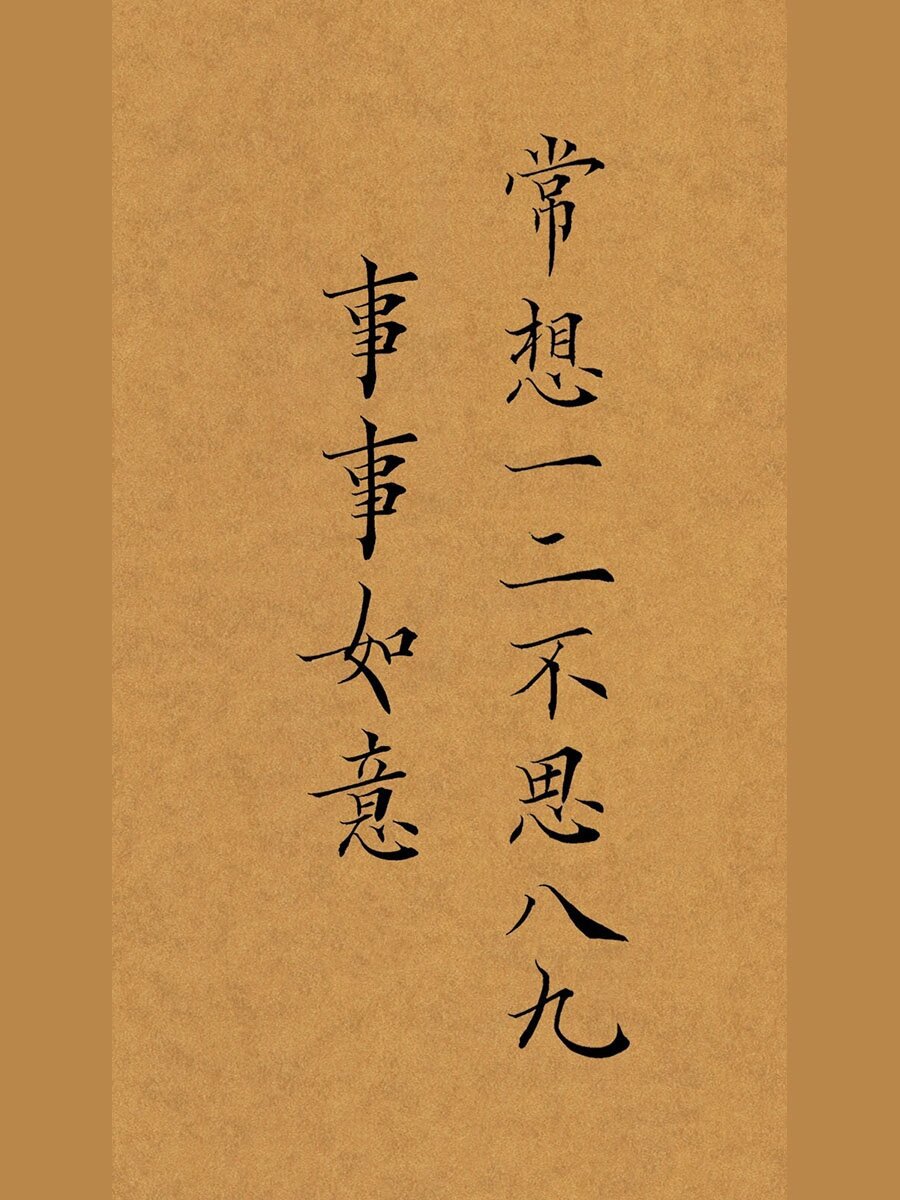 常想一二不思八九
事事如意